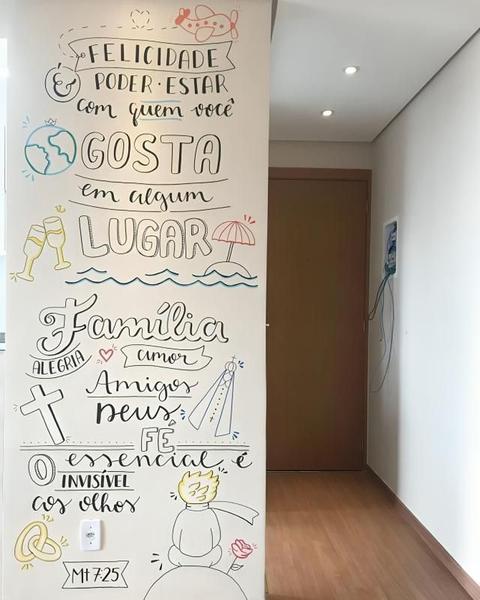 FELICIDADE
É PODER · ESTAR
com quem você
GOSTA
em algum
LUGAR
Família
ALEGRIA amor
Amigos
Deus
FÉ
O essencial é
INVISÍVEL
aos olhos
Mt 7:25